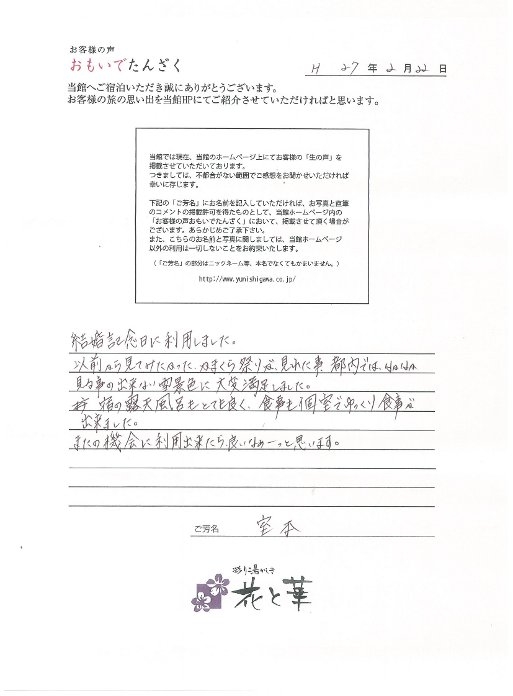 お客様の声
おもいでたんざく
H 27年 2月22日
当館へご宿泊いただき誠にありがとうございます。
お客様の旅の思い出を当館HPにてご紹介させていただければと思います。
当館では現在、当館のホームページ上にてお客様の「生の声」を
掲載させていただいております。
つきましては、不都合がない範囲でご感想をお聞かせいただければ
幸いに存じます。
下記の「ご芳名」にお名前を記入していただければ、お写真と直筆
のコメントの掲載許可を得たものとして、当館ホームページ内の
「お客様の声おもいでたんざく」において、掲載させて頂く場合が
ございます。あらかじめご了承下さい。
また、こちらのお名前と写真に関しましては、当館ホームページ
以外の利用は一切しないことをお約束いたします。
(「ご芳名」の部分はニックネーム等、本名でなくてもかまいません。)
http://www.yunishigawa.co.jp/
結婚記念日に利用しました。
以前から見てみたかった、かまくら祭りが、見れた事 都内では、なかなか
見る事の出来ない雪景色に大変満足しました。
宿の露天風呂もとても良く、食事も個室でゆっくり食事が
出来ました。
またの機会に利用出来たら良いなぁーっと思います。
ご芳名 室本
彩り湯かしき
花と華